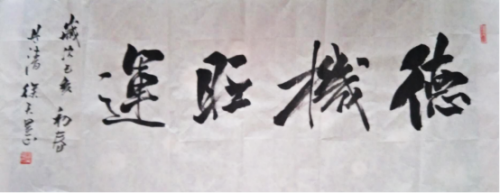 德機旺運
歲次己亥初春